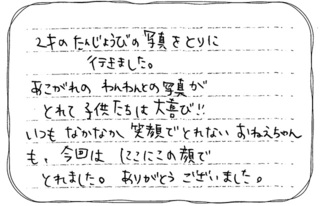 2才のたんじょうびの写真をとりに
行きました。
あこがれの わんわんとの写真が
とれて 子供たちは大喜び!!
いつも なかなか 笑顔でとれない おねえちゃん
も、今回は にこにこの顔で
とれました。 ありがとう ございました。